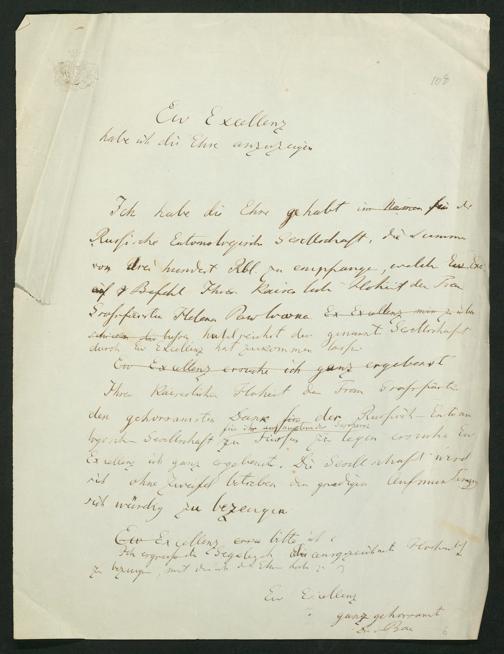 108
Ew Excellenz
habe ich die Ehre anzuzeigen
Ich habe die Ehre gehabt im Namen für die
Russische Entomologische Gesellschaft, die Summe
von drei hundert Rbl zu empfangen, welche Ew Exc
auf Befehl Ihrer Kaiserlich Hoheit der Frau
Grossfürstin Helena Pawlowna Ex Excellenz mir zu
huldreichst der genannt Gesellschaft
durch Ew Excellenz hat zukommen lassen
Ew Excellenz ersuche ich ganz ergebenst
Ihrer Kaiserlichen Hoheit der Frau Grossfürstin
den gehorsamsten Dank für der Russisch Entomo
für ihr
logischen Gesellschaft zu Füssen zu legen ersuche Ew
Excellenz ich ganz ergebenst. Die Gesellschaft wird
sich ohne Zweifel bestreben den gnädigen Aufmunterungen
sich würdig zu bezeugen
Ew Excellenz bitte ich
Ich ergreife die Gelegenh die ausgezeichnet Hochacht
zu bezeugen, mit der ich die Ehre habe zu
Ew Excellenz
ganz gehorsamst
Bae